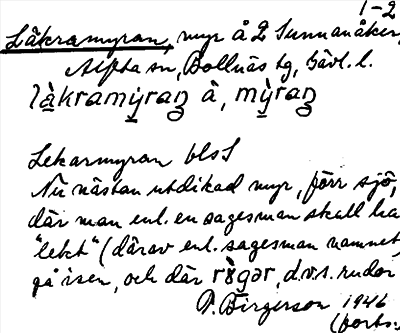 1-2
Låkramyran, myr å 2 Sunnanåker,
Alfta sn, Bollnäs tg, Gävl. l.
låkramyraɳ å, myraɳ
Lekarmyran blsS
Nu nästan utdikad myr, förr sjö,
där man enl. en sagesman skall ha
"lekt" (därav enl. sagesman namnet)
på isen, och där rögər, d.v.s. rudor
P. Birgerson 1946
(forts.